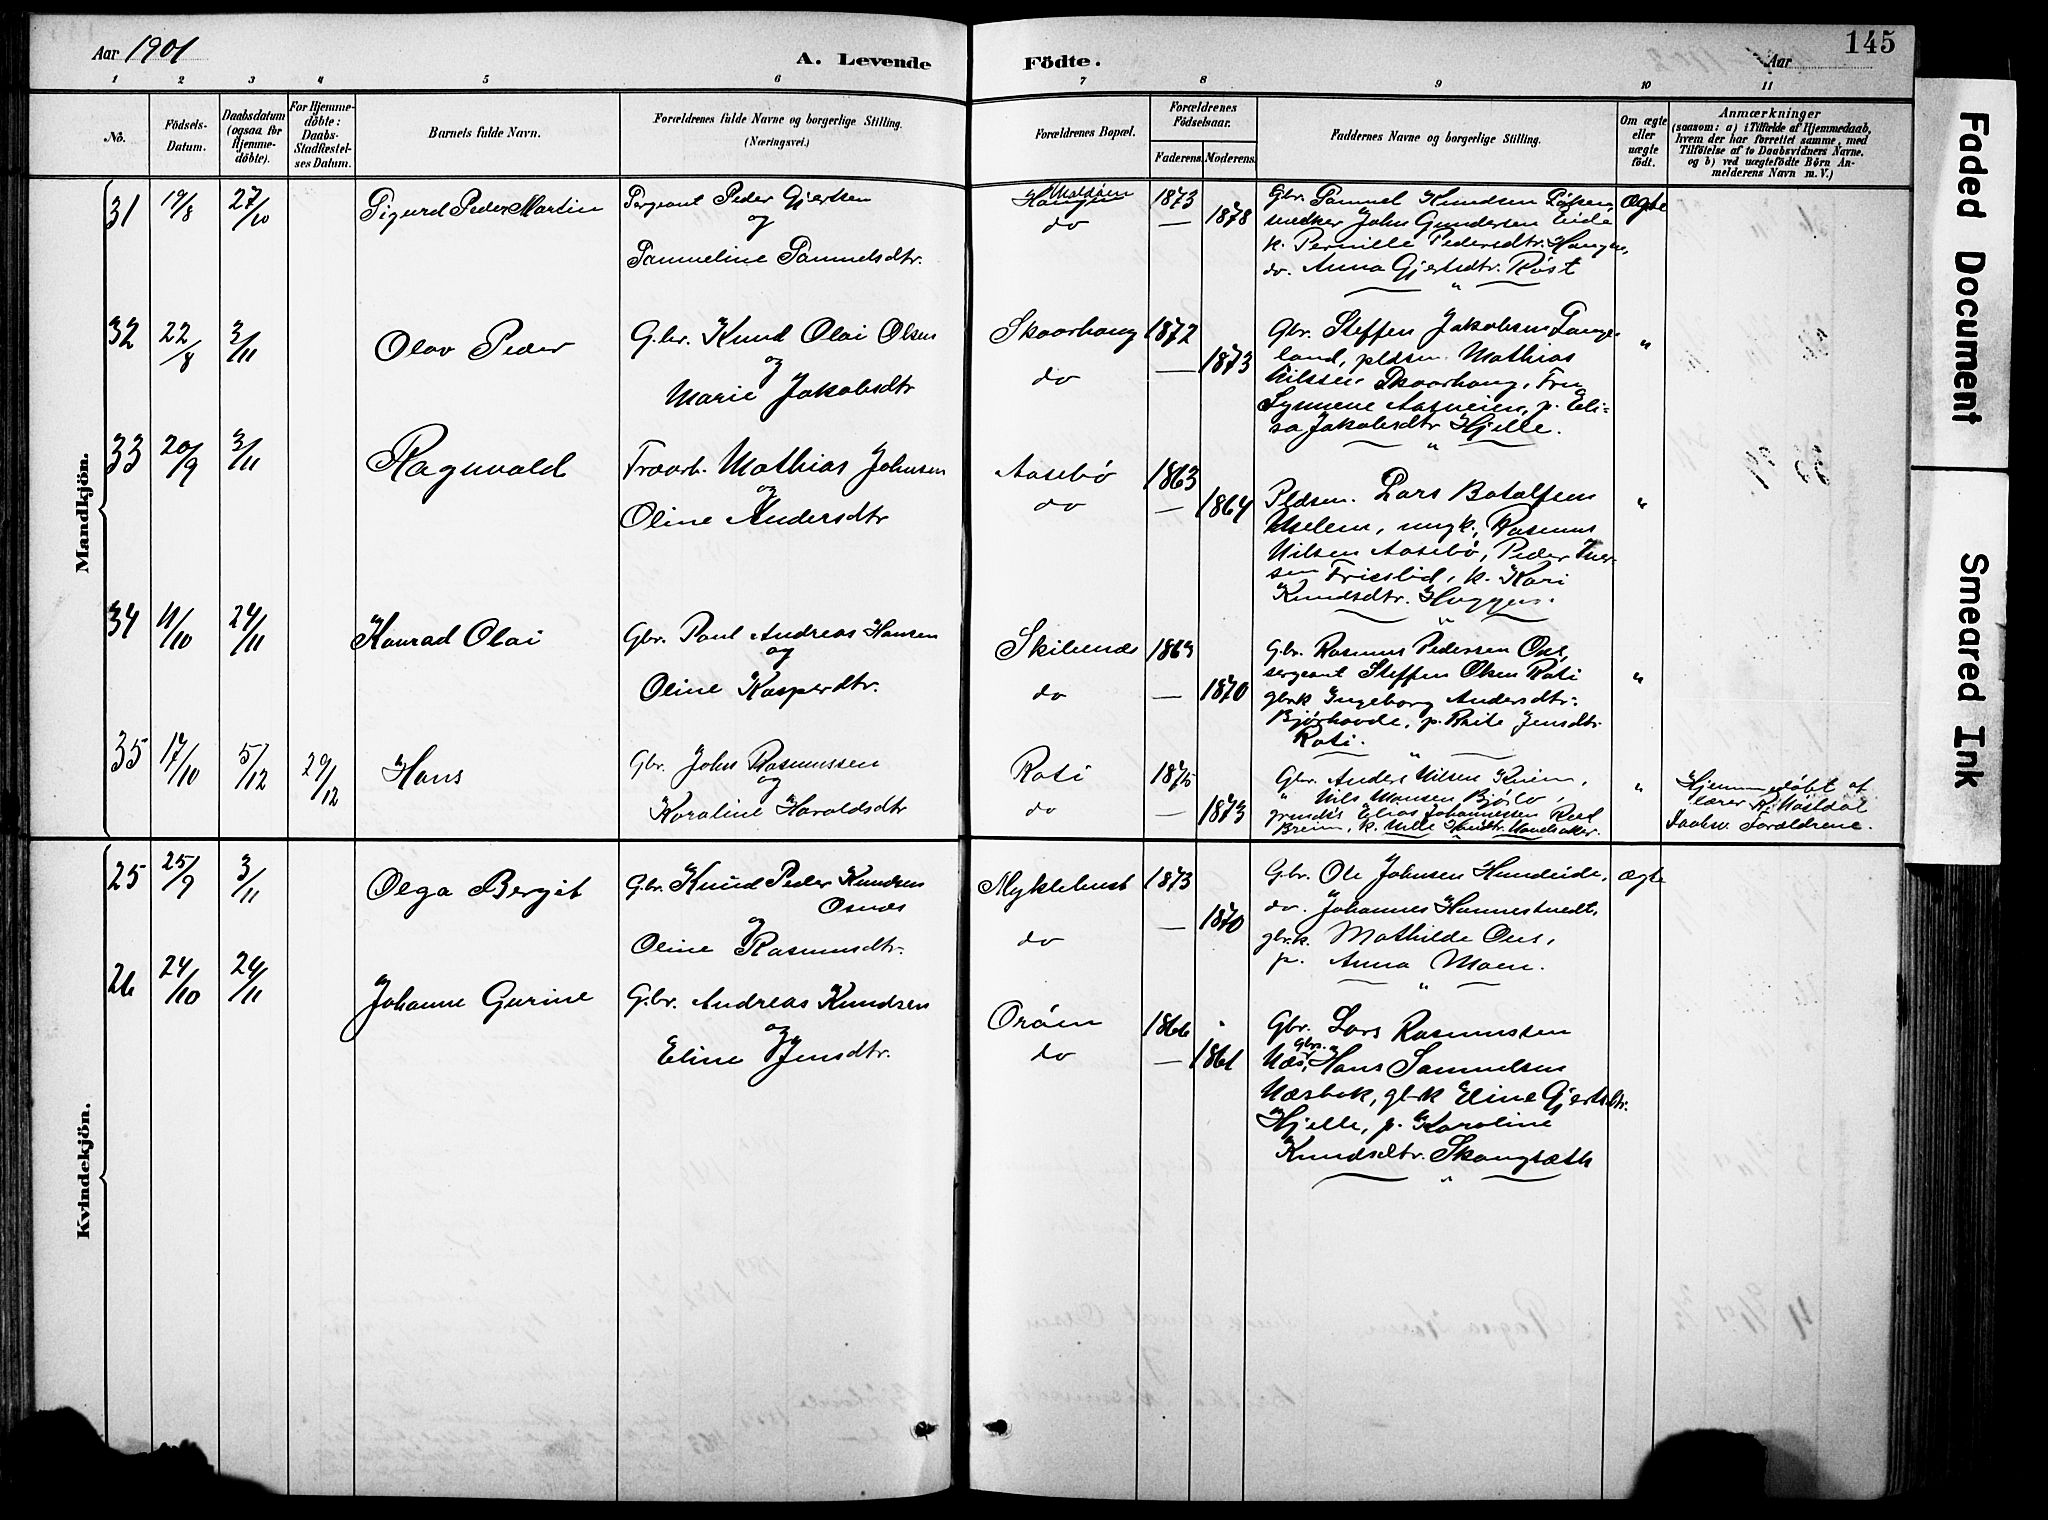 Aar 1901
A. Levende Födte.
Aar
145
1 2 3 4 5 6 7 8 9 10 11
No.
Födsels-
Datum.
Daabsdatum
(ogsaa for
Hjemme-
döbte).
For Hjemme-
döbte:
Daabs-
Stadfæstel-
ses Datum.
Barnets fulde Navn.
Forældrenes fulde Navne og borgerlige Stilling.
(Næringsvei.)
Forældrenes Bopæl.
Forældrenes
Födselsaar.
Faderens. Moderens.
Faddernes Navne og borgerlige Stilling.
Om ægte
eller
uægte
födt.
Anmærkninger
(saasom: a) i Tilfælde af Hjemmedaab,
hvem der har forrettet samme, med
Tilföielse af to Daabsvidners Navne.
og b) ved uægtefödte Börn An-
melderens Navn m. V.)
Mandkjön.
31 19/8 27/10 Sigurd Peder Martin
Sergeant Peder Gjertsen
og
Samueline Samuelsdtr.
Maldøen
do
1873
— 1878
Gbr. Samuel Knudsen
snedker John Gundersen Eide
k. Pernille Pedersdtr. Haugen,
do. Anna Gjertsdtr. Røst
Ægte
32 22/8 3/11 Olav Peder
Gbr. Knud Olai Olsen
og
Marie Jakobsdtr
Skaarhaug
do
1872
— 1873
Gbr. Steffen Jakobsen Lange-
land, pldsm. Mathias
Nilssen Skaarhaug, Fru
Synneve Aasneien, p. Eli-
sa Jakobsdtr Hjelle.
"
33 20/9 3/11 Ragnvald
Mathias Johnsen
og
Oline Andersdtr
Aasebø
do
1863
— 1864
Pldsm. Lars Botolfsen
Uselem, ungk. Rasmus
Nilsen Aasebø, Peder Iver-
sen Frieslid, k. Kari
Knudsdtr. Huggen.
"
34 11/10 24/11 Konrad Olai
Gbr. Paul Andreas Hansen
og
Oline Kasperdtr.
Skibenes
do
1869
— 1870
Gbr. Rasmus Pedersen Ous,
sergeant Steffen Olsen Roti
gbrk Ingeborg Andersdtr.
Bjørhovde, p. Rite Jensdtr.
Roti.
"
35 17/10 5/12 29/12 Hans
Gbr. John Rasmussen
og
Karoline Haroldsdtr
Roti
do
1875
— 1873
Gbr. Anders Nilsen
" Nils Monsen Bjørlo,
Elias Johannessen Reed
Breim, k. Nille
"
Hjemmedøbt af
lærer K. Mostdal
Daabsv. Forældrene.
Kvindekjön.
25 25/9 3/11 Olga Bergit
Gbr. Knud Peder Knudsen
Osnes
og
Oline Rasmusdtr.
Myklebust
do
1873
— 1870
Gbr. Ole Johnsen Hundeide,
do. Johannes Hannestvedt,
gbrk. Mathilde Ous,
p. Anna Moen.
ægte
26 24/10 24/11 Johanne Gurine
Gbr. Andreas Knudsen
og
Eline Jensdtr.
Orøen
do
1866
— 1861
Gbr. Lars Rasmussen
Næs, gbr. Hans Samuelsen
Næsbak, gbrk Eline Gjertsdtr.
Hjelle, p. Karoline
Knudsdtr. Skaugsæth
"
Faded Document
Smeared Ink